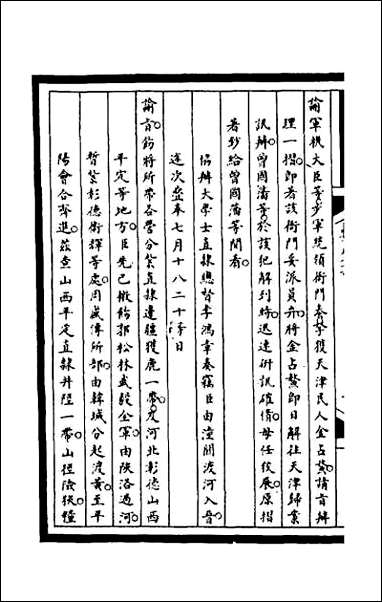 諭軍機大臣等步軍統領衙門奏拏獲天津民人金占鰲請旨辦
理一摺即著該衙門妥派員弁將金占鰲即日解往天津歸案
訊辦曾國藩等於該犯解到時迅速研訊確情毋任狡展原摺
著鈔給曾國藩等閱看
協辦大學士直隸總督李鴻章奏竊臣由潼關渡河入晉
迭次欽奉七月十八二十等日
諭旨飭將所帶各營分紮直隸邊疆獲鹿一帶及河北彰德山西
平定等地方臣先已檄飭郭松林武毅全軍由陝洛過河
暫紮彰德衛輝等處周盛傳所部由韓城分起渡黃至平
陽會合齊進茲查山西平定直隸井陘一帶山徑險狹糧